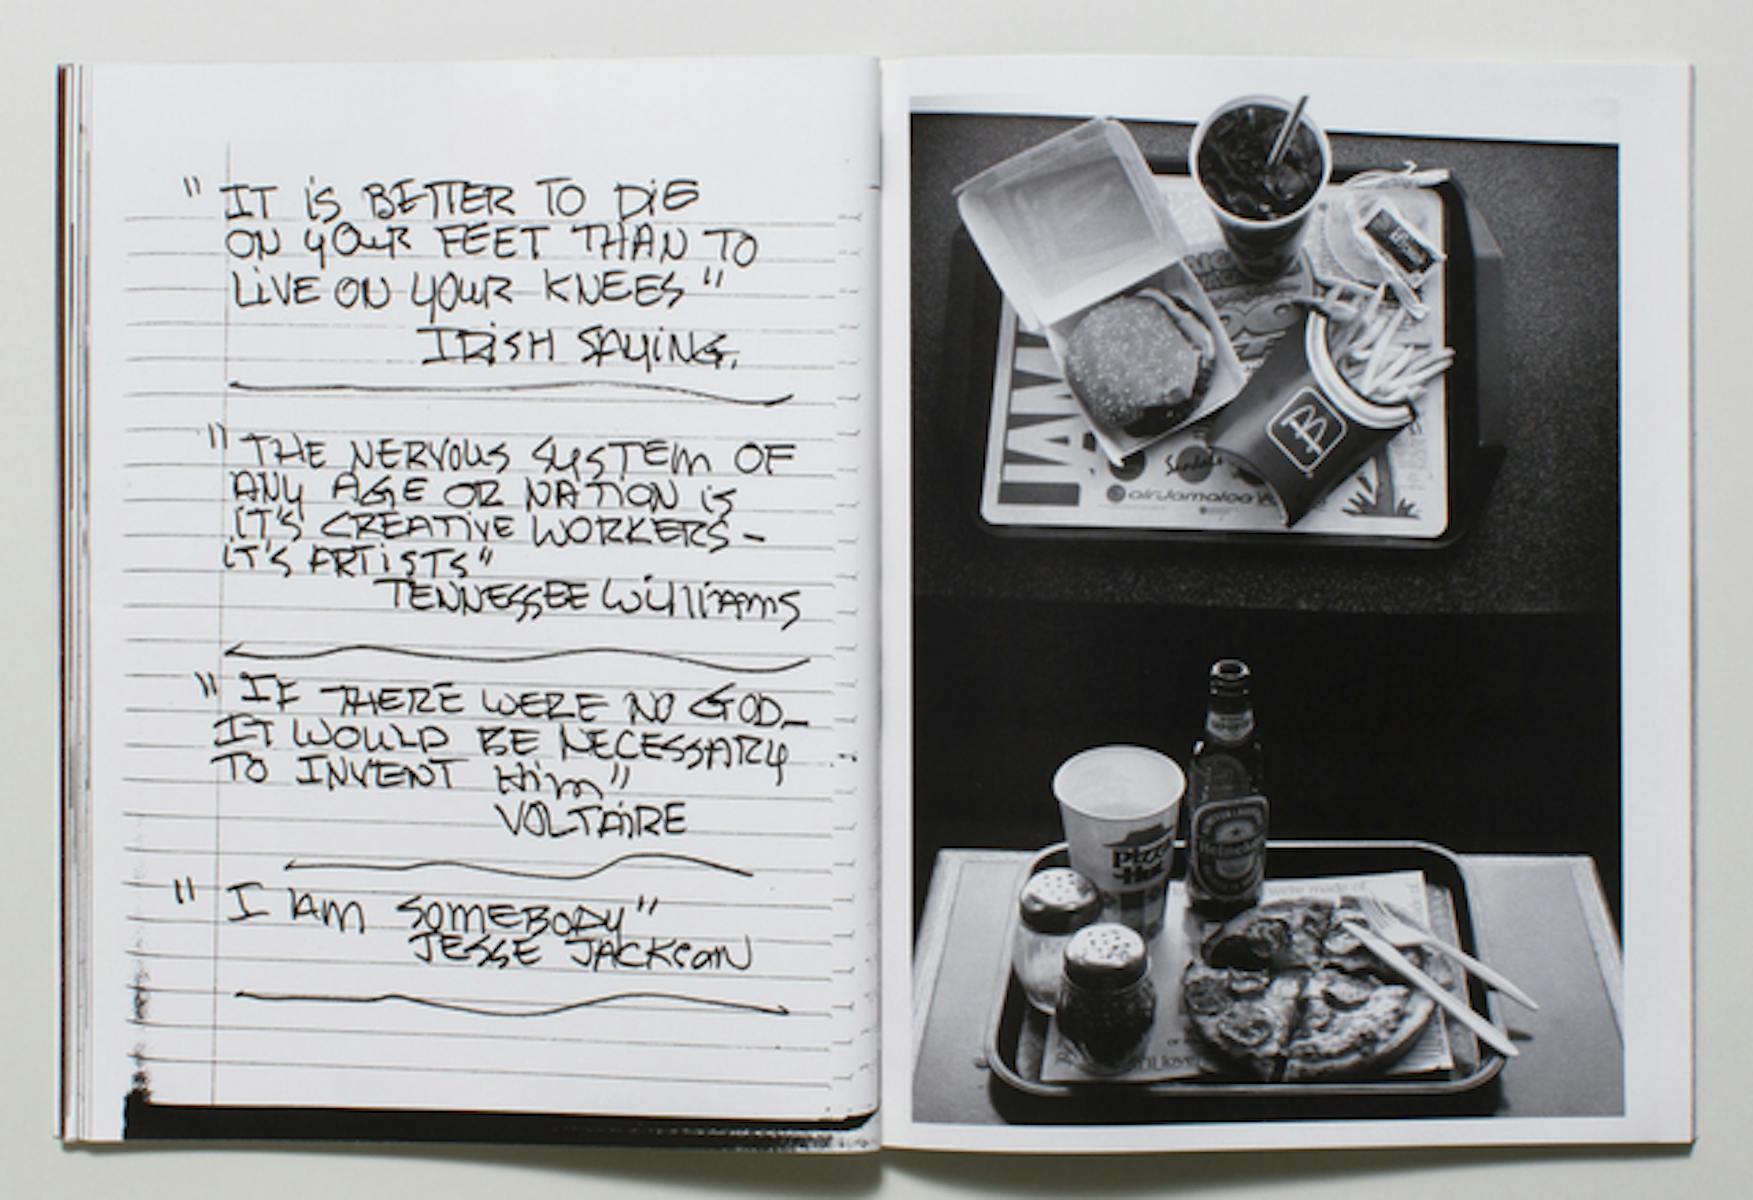 "IT iS BETTER TO DiE
ON YOUR FEET THAN TO
LiVE ON YOUR KNEES"
IRiSH SAYiNG.
"THE NERVOUS SYSTEM OF
ANY AGE OR NATION iS
IT'S CREATiVE WORKERS-
iT'S ARTiSTS"
TENNESSEE WilliAMS
"IF THERE WERE NO GOD-
IT WOULD BE NECESSARY
TO INVENT HiM"
VOLTAiRE
"I AM SOMEBODY"
JESSE JACKSON
JAM
airJamaica
Heineken
Pizza
Hut
we're made of